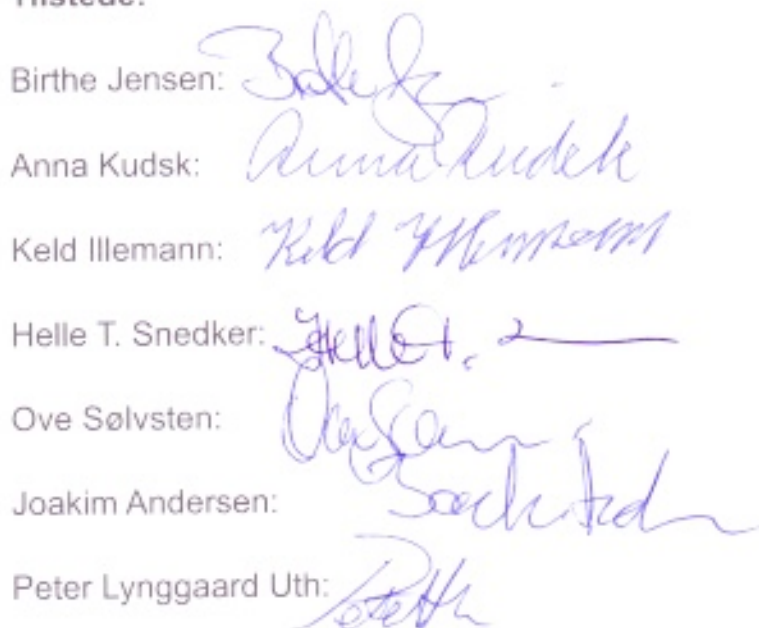 Tilstede:
Birthe Jensen:
Anna Kudsk: Anna Kudsk
Keld Illemann: Keld Illemann
Helle T. Snedker: Helle T.
Ove Sølvsten:
Joakim Andersen:
Peter Lynggaard Uth: